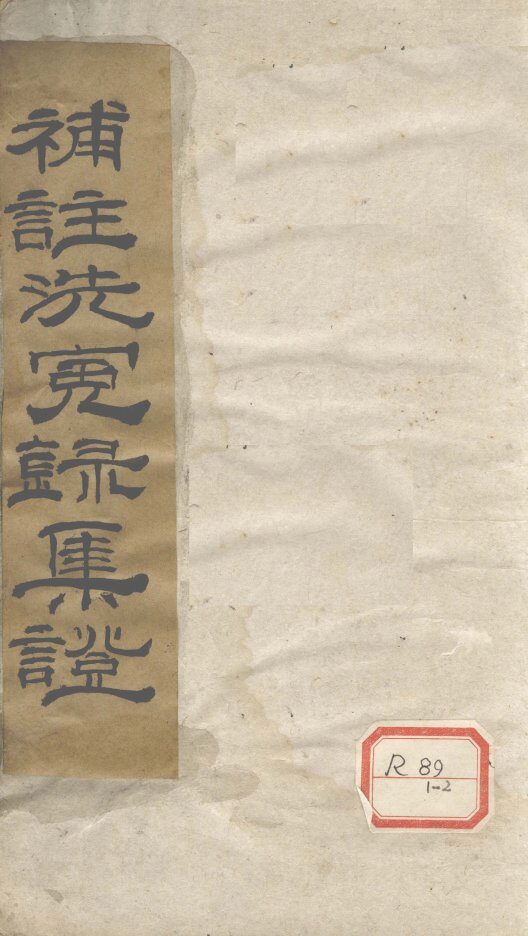 補註洗冤錄集證
R 89
1-2